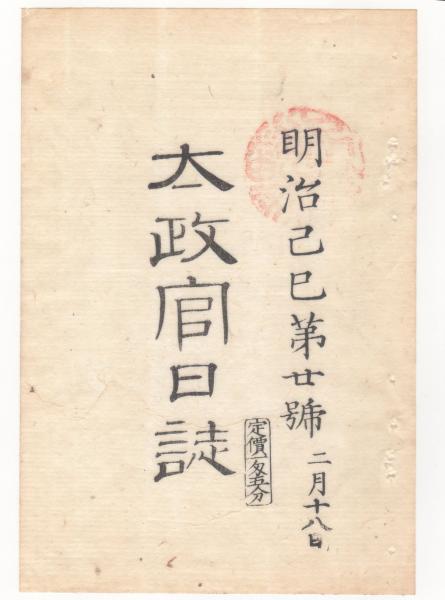 明治己巳第廿號 二月十八日
太政官日誌
定價一匁五分